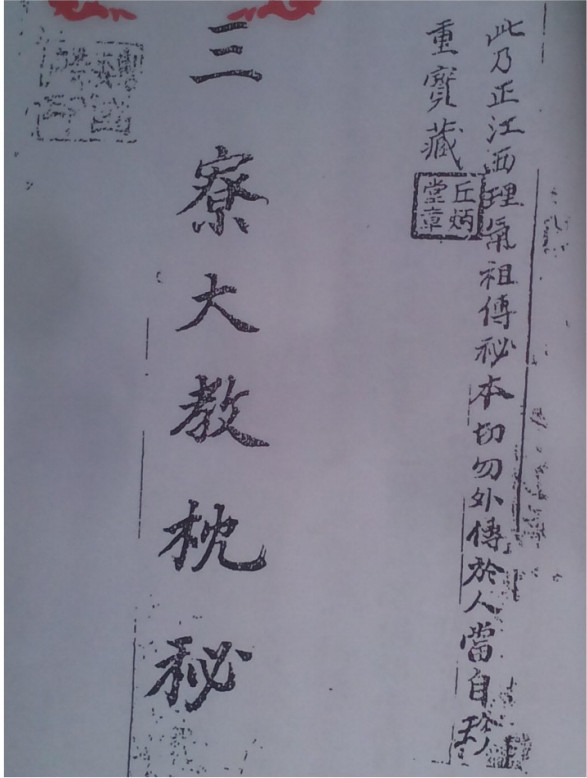 此乃正江西理氣祖傳秘本切勿外傳於人當自珍
重寶藏
丘炳
堂章
三寮大教枕秘